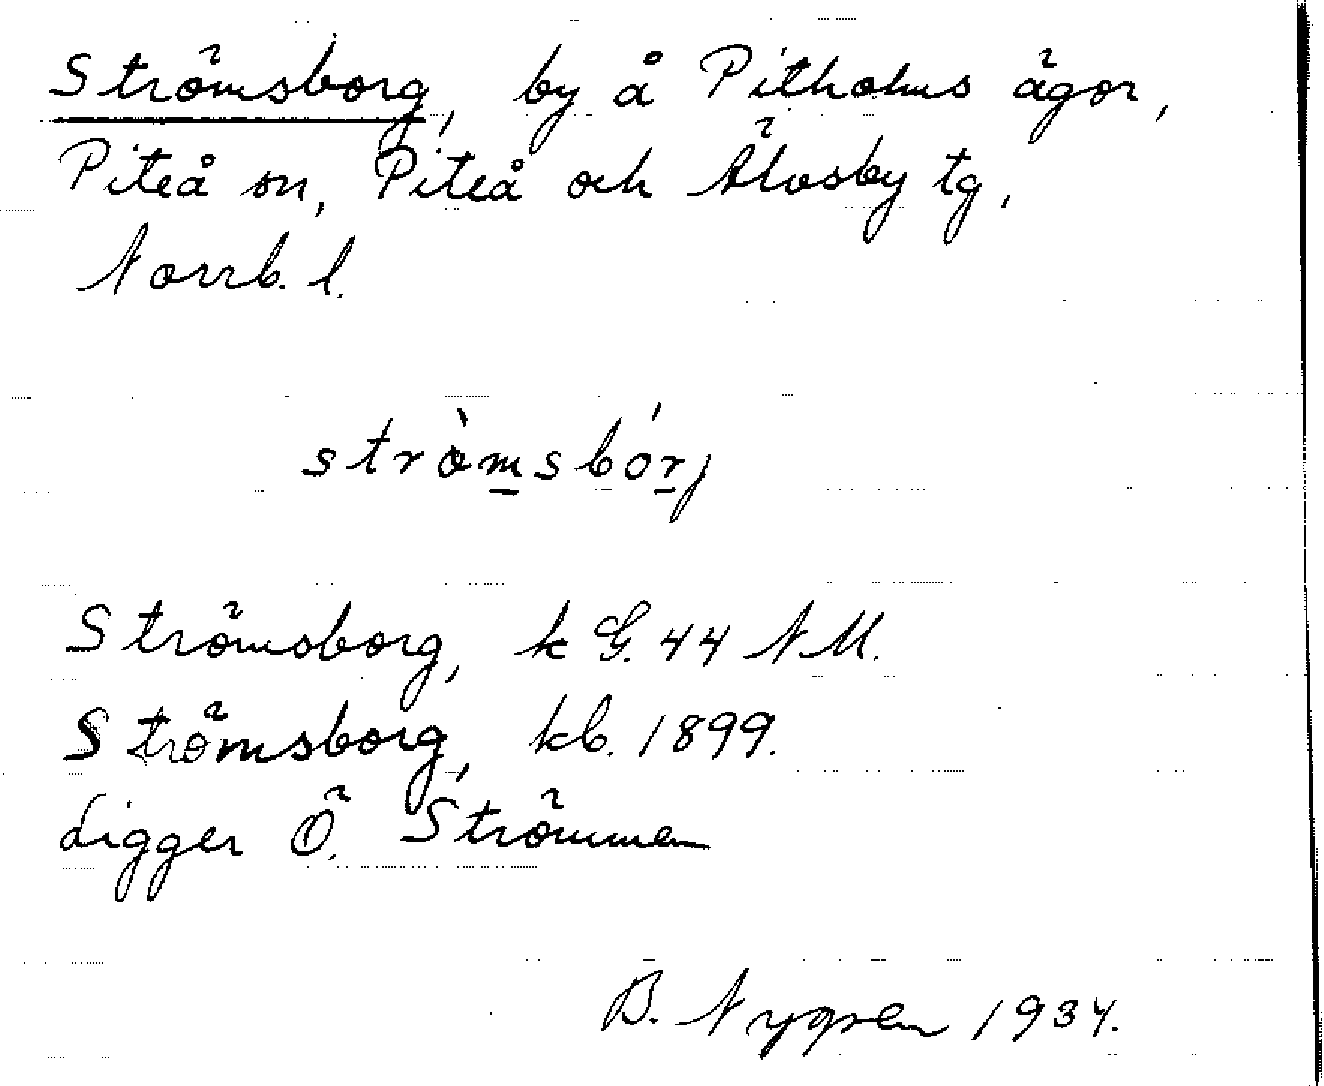 Strömsborg, by å Pitholms ägor,
Piteå sn, Piteå och Älvsby tg,
Norrb. l.
strömsbórj
Strömsborg, k G. 44 N M.
Strömsborg, kb. 1899.
Ligger Ö. Strömmen
B. Nygren 1934.